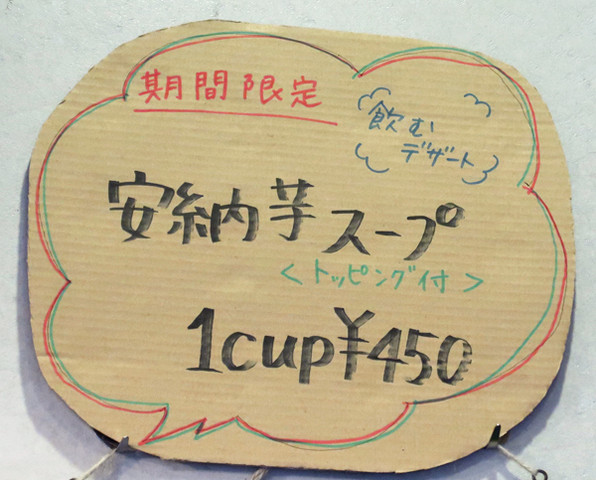 期間限定
飲む
デザート
安納芋スープ
<トッピング付>
1cup¥450